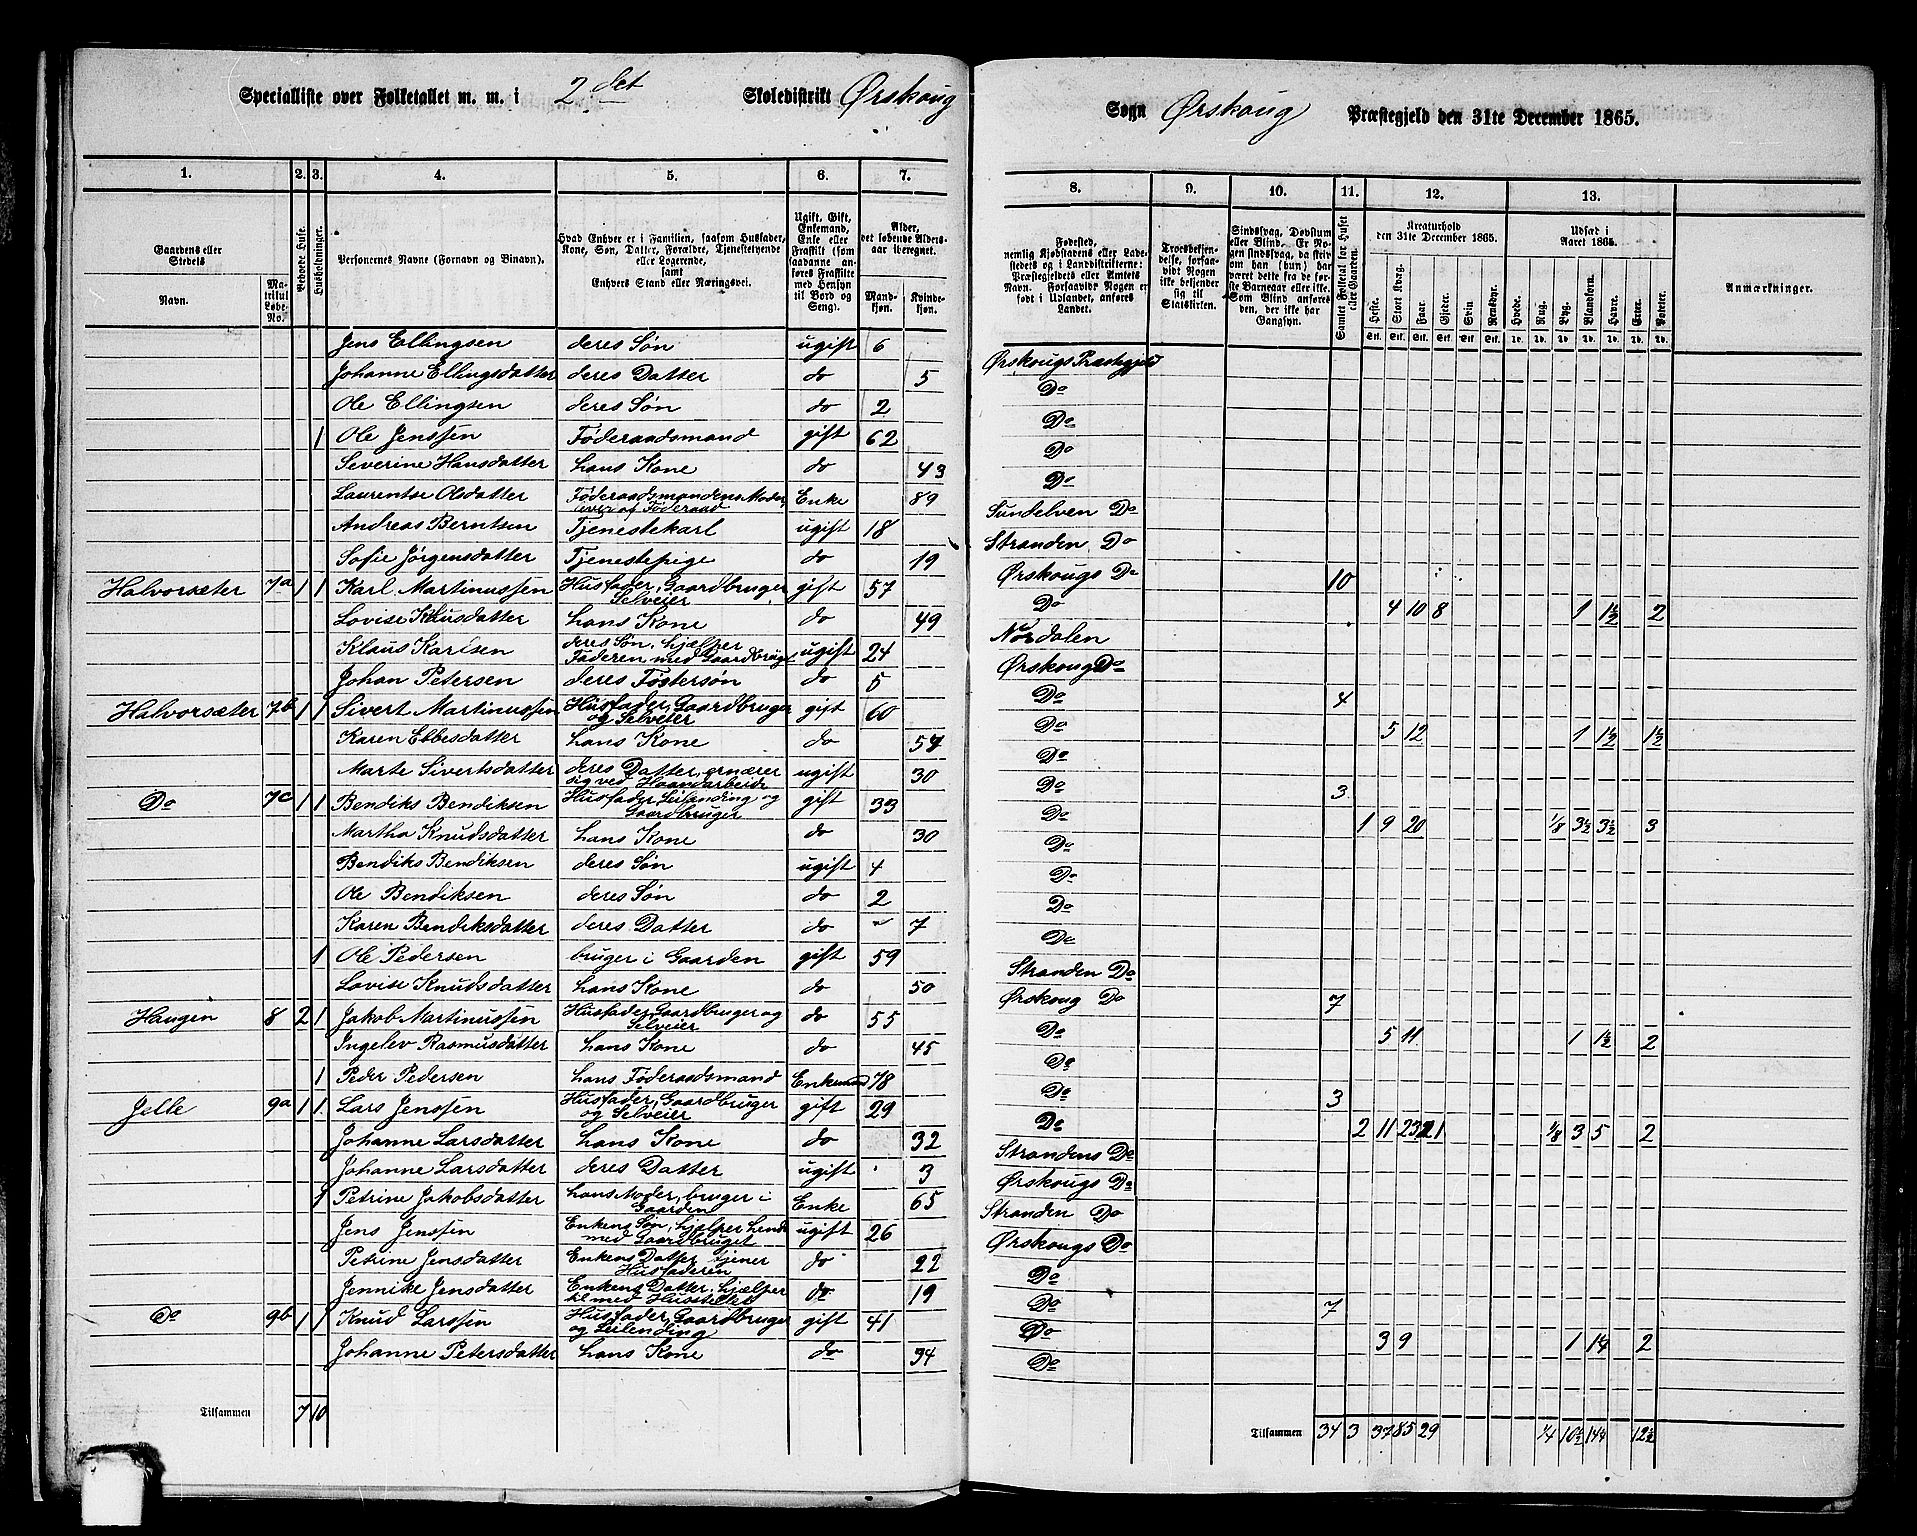 Specialliste over Folketallet m. m. i 2det Skoledistrikt Ørskoug
Sogn Ørskoug Præstegjeld den 31te December 1865.
1. 2. 3. 4. 5. 6. 7.
8. 9. 10. 11. 12. 13.
Gaardens eller Stedets
Navn.
Matrikul Løbe-No.
Beboede Huse.
Husholdninger.
Personernes Navne (Fornavn og Binavn).
Hvad Enhver er i Familien, saasom Husfader, Kone, Søn, Datter, Forældre, Tjenestetyende eller Logerende, samt Enhvers Stand eller Næringsvei.
Ugift, Gift, Enkemand, Enke eller Fraskilt (som saadanne anføres Fraskilte med Hensyn til Bord og Seng).
Alder, det løbende Aldersaar iberegnet.
Mandkjøn. Kvindekjøn.
Fødested, nemlig Kjøbstadens eller Ladestedets og i Landdistrikterne: Præstegjeldets eller Amtets Navn. Forsaavidt Nogen er født i Udlandet, anføres Landet.
Troesbekjendelse, forsaavidt Nogen ikke bekjender sig til Statskirken.
Sindssvag, Døvstum eller Blind. Er Nogen sindssvag, da skrives om han (hun) har været dette fra de første Barneaar eller ikke. Som Blind anføres den, der ikke har Gangsyn.
Samlet Folketal for Huset eller Gaarden.
Kreaturhold den 31te December 1865.
Heste. Stort Kvæg. Faar. Gjeder. Svin. Rensdyr.
Udsæd i Aaret 1865.
Hvede. Rug. Byg. Blandkorn. Havre. Erter. Poteter.
Anmærkninger.
Jens Ellingsen deres Søn ugift 6 Ørskougs Præstegjeld
Johanne Ellingsdatter deres Datter do 5 Do
Ole Ellingsen deres Søn do 2 Do
1 Ole Jenssen Føderaadsmand gift 62 Do
Severine Hansdatter hans Kone do 43 Do
Laurentse Olsdatter Føderaadsmandens Moder, lever af Føderaad Enke 89 Sundelven Do
Andreas Berntsen Tjenestekarl ugift 18 Stranden Do
Sofie Jørgensdatter Tjenestepige do 19 Ørskougs Do 10
Halvorsæter 7a 1 1 Karl Martinussen Husfader, Gaardbruger Selveier gift 57 Do 4 10 8 1 1½ 2
Lovise Knusdatter hans Kone do 49 Nordalen
Klaus Karlsen deres Søn, hjælper Faderen med Gaardbruget ugift 24 Ørskoug Do
Johan Petersen deres Fostersøn do 5 Do 4
Halvorsæter 7b 1 1 Sivert Martinussen Husfader, Gaardbruger og Selveier gift 60 Do 5 12 1 1½ 1½
Karen Ebbesdatter hans Kone do 57 Do
Marte Sivertsdatter deres Datter, ernærer sig ved Haandarbeide ugift 30 Do 3
Do 7c 1 1 Bendiks Bendiksen Husfader, Leilending og Gaardbruger gift 33 Do 1 9 20 ⅛ 3½ 3½ 3
Martha Knudsdatter hans Kone do 30 Do
Bendiks Bendiksen deres Søn ugift 4 Do
Ole Bendiksen deres Søn do 2 Do
Karen Bendiksdatter deres Datter do 7 Do
1 Ole Pedersen bruger i Gaarden gift 59 Stranden Do
Lovise Knudsdatter hans Kone do 50 Ørskoug Do 7
Haugen 8 2 1 Jakob Martinussen Husfader, Gaardbruger og Selveier do 55 Do 5 11 1 1½ 2
Ingelev Rasmusdatter hans Kone do 45 Do
1 Peder Pedersen hans Føderaadsmand Enkemand 78 Do 3
Jelle 9a 1 1 Lars Jenssen Husfader, Gaardbruger og Selveier gift 29 Do 2 11 23 21 ⅛ 3 5 2
Johanne Larsdatter hans Kone do 32 Strandens Do
Johanne Larsdatter deres Datter ugift 3 Ørskougs Do
1 Petrine Jakobsdatter hans Moder, bruger i Gaarden Enke 65 Stranden Do
Jens Jenssen Enkens Søn, hjælper hende med Gaardbruget ugift 26 Ørskougs Do
Petrine Jensdatter Enkens Datter, tjener Husfaderen do 22 Do
Jennike Jensdatter Enkens Datter, hjælper til med Husstellet do 19 Do 7
Do 9b 1 1 Knud Larssen Husfader, Gaardbruger og Leilending gift 41 Do 3 9 1 1¼ 2
Johanne Petersdatter hans Kone do 34 Do
Tilsammen 7 10
Tilsammen 34 3 37 85 29 ¼ 10½ 14¼ 12½